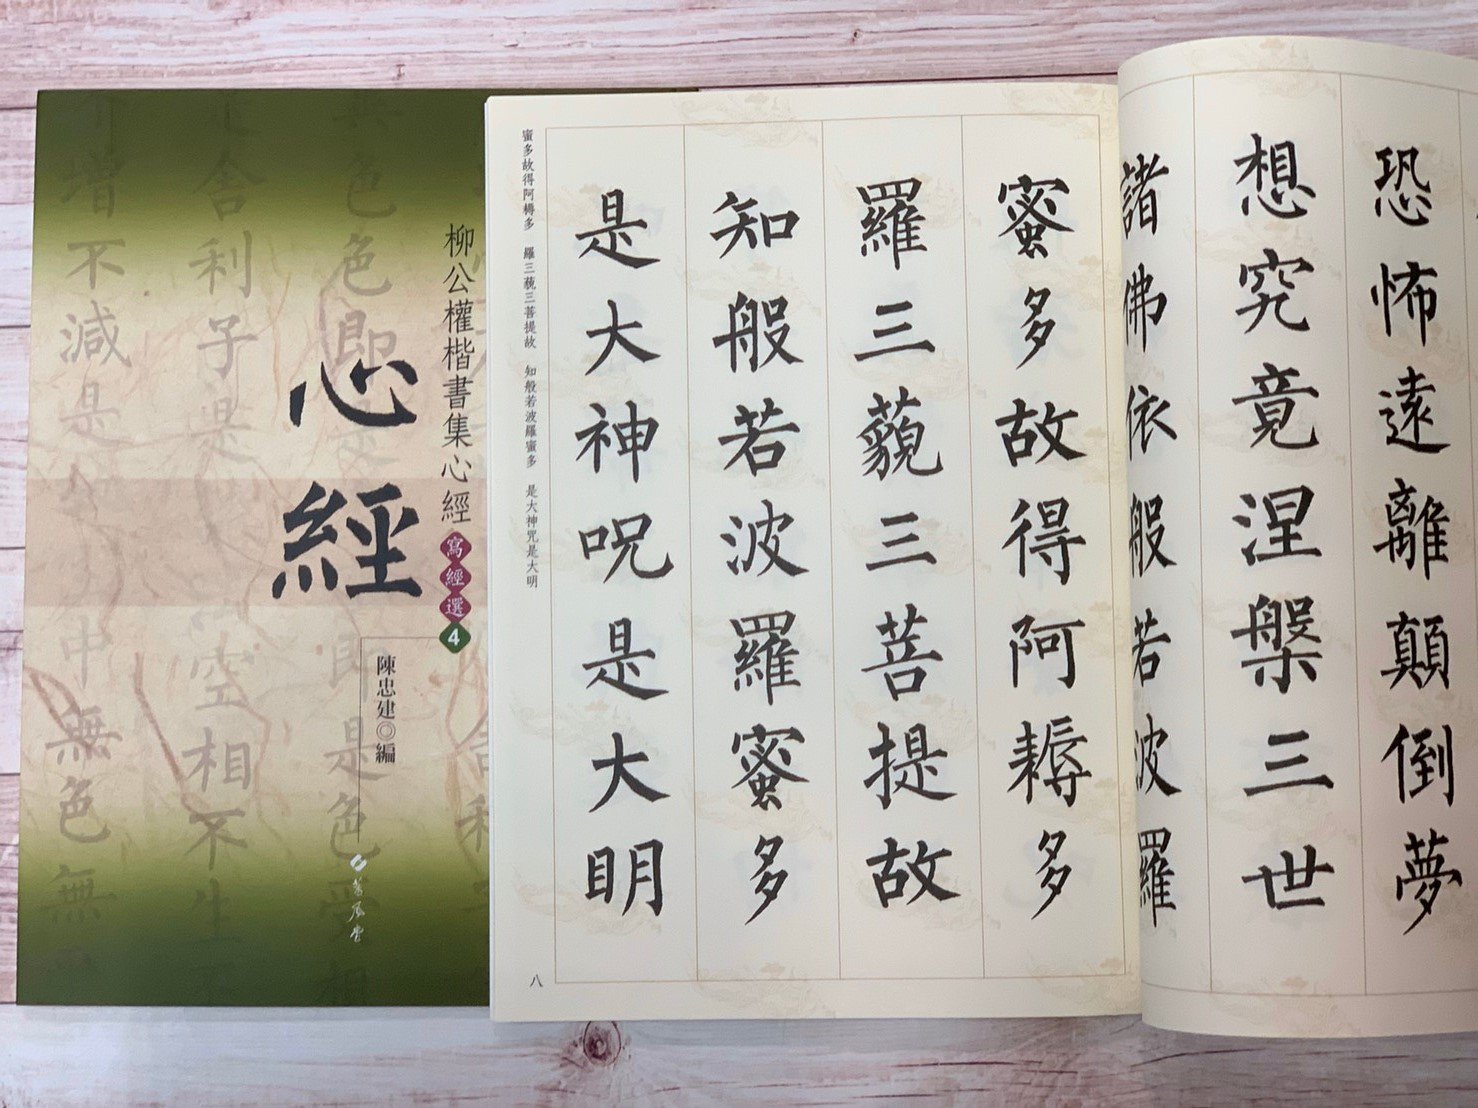 柳公權楷書集心經
寫經選4
心經
陳忠建◎編
蕙風堂
舍利子是
空相不生
增不減是
中無色無
恐怖遠離顛倒夢
想究竟涅槃三世
諸佛依般若波羅
蜜多故得阿耨多
羅三藐三菩提故
知般若波羅蜜多
是大神呪是大明
蜜多故得阿耨多　羅三藐三菩提故　知般若波羅蜜多　是大神咒是大明
八